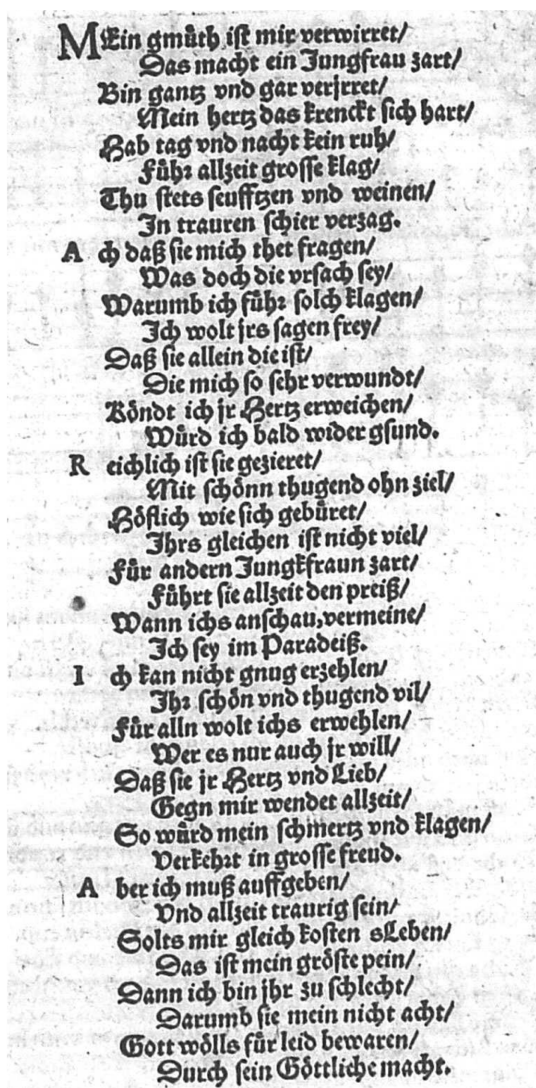 MEin gmüth ist mir verwirret/
Das macht ein Jungfrau zart/
Bin gantz vnd gar verjrret/
Mein hertz das krenckt sich hart/
Hab tag vnd nacht kein ruh/
Führ allzeit grosse klag/
Thu stets seufftzen vnd weinen/
In trauren schier verzag.
Ach daß sie mich thet fragen/
Was doch die vrsach sey/
Warumb ich führ solch klagen/
Ich wolt jrs sagen frey/
Daß sie allein die ist/
Die mich so sehr verwundt/
Köndt ich jr Hertz erweichen/
Würd ich bald wider gsund.
Reichlich ist sie gezieret/
Mit schönn thugend ohn ziel/
Höflich wie sich gebüret/
Ihrs gleichen ist nicht viel/
Für andern Jungkfraun zart/
Führt sie allzeit den preiß/
Wann ichs anschau, vermeine/
Ich sey im Paradeiß.
Ich kan nicht gnug erzehlen/
Ihr schön vnd thugend vil/
Für alln wolt ichs erwehlen/
Wer es nur auch jr will/
Daß sie jr Hertz vnd Lieb/
Gegn mir wendet allzeit/
So würd mein schmertz vnd klagen/
Verkehrt in grosse freud.
Aber ich muß auffgeben/
Vnd allzeit traurig sein/
Solts mir gleich kosten sLeben/
Das ist mein gröste pein/
Dann ich bin jhr zu schlecht/
Darumb sie mein nicht acht/
Gott wölls für leid bewaren/
Durch sein Göttliche macht.